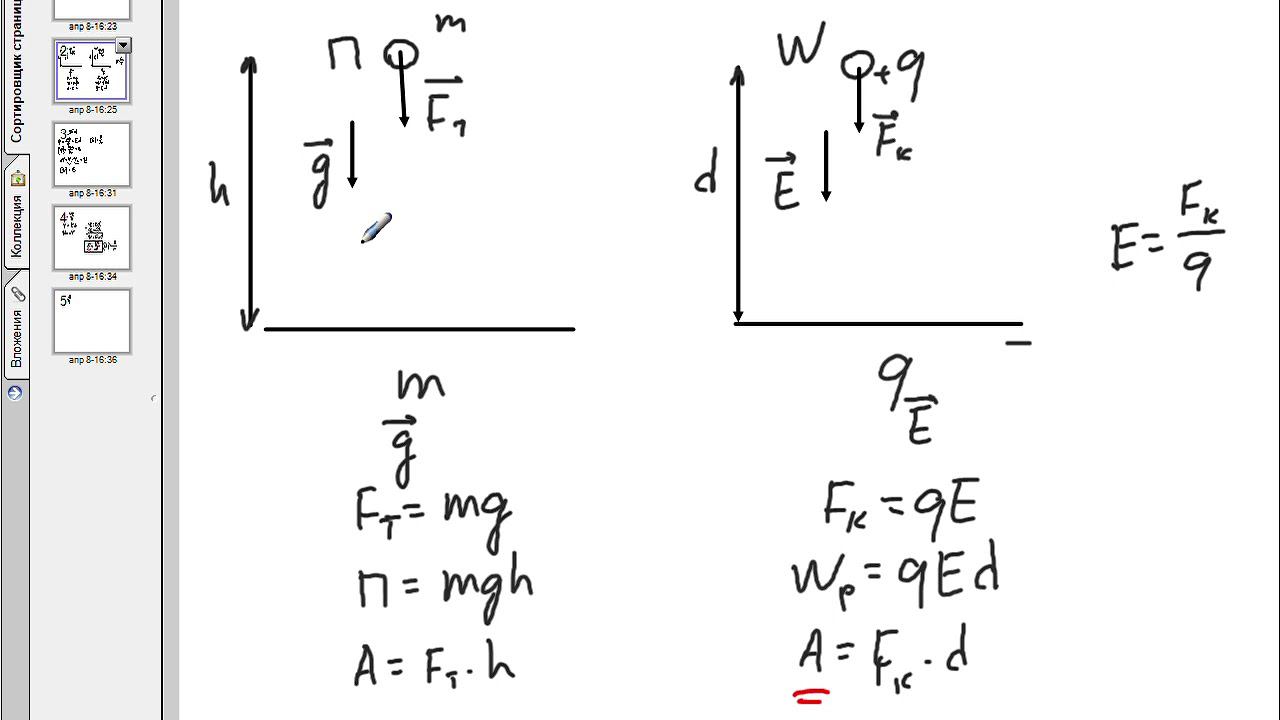 Сортировщик страниц
Коллекция
Вложения
апр 8-16:23
2
апр 8-16:25
3
апр 8-16:31
4
апр 8-16:34
5
апр 8-16:36
П m
F⃗т
g⃗
h
m
g⃗
Fт = mg
П = mgh
A = Fт · h
W + q
F⃗к
E⃗
d
−
q
E⃗
Fк = qE
Wp = qEd
A = Fк · d
E = Fк/q